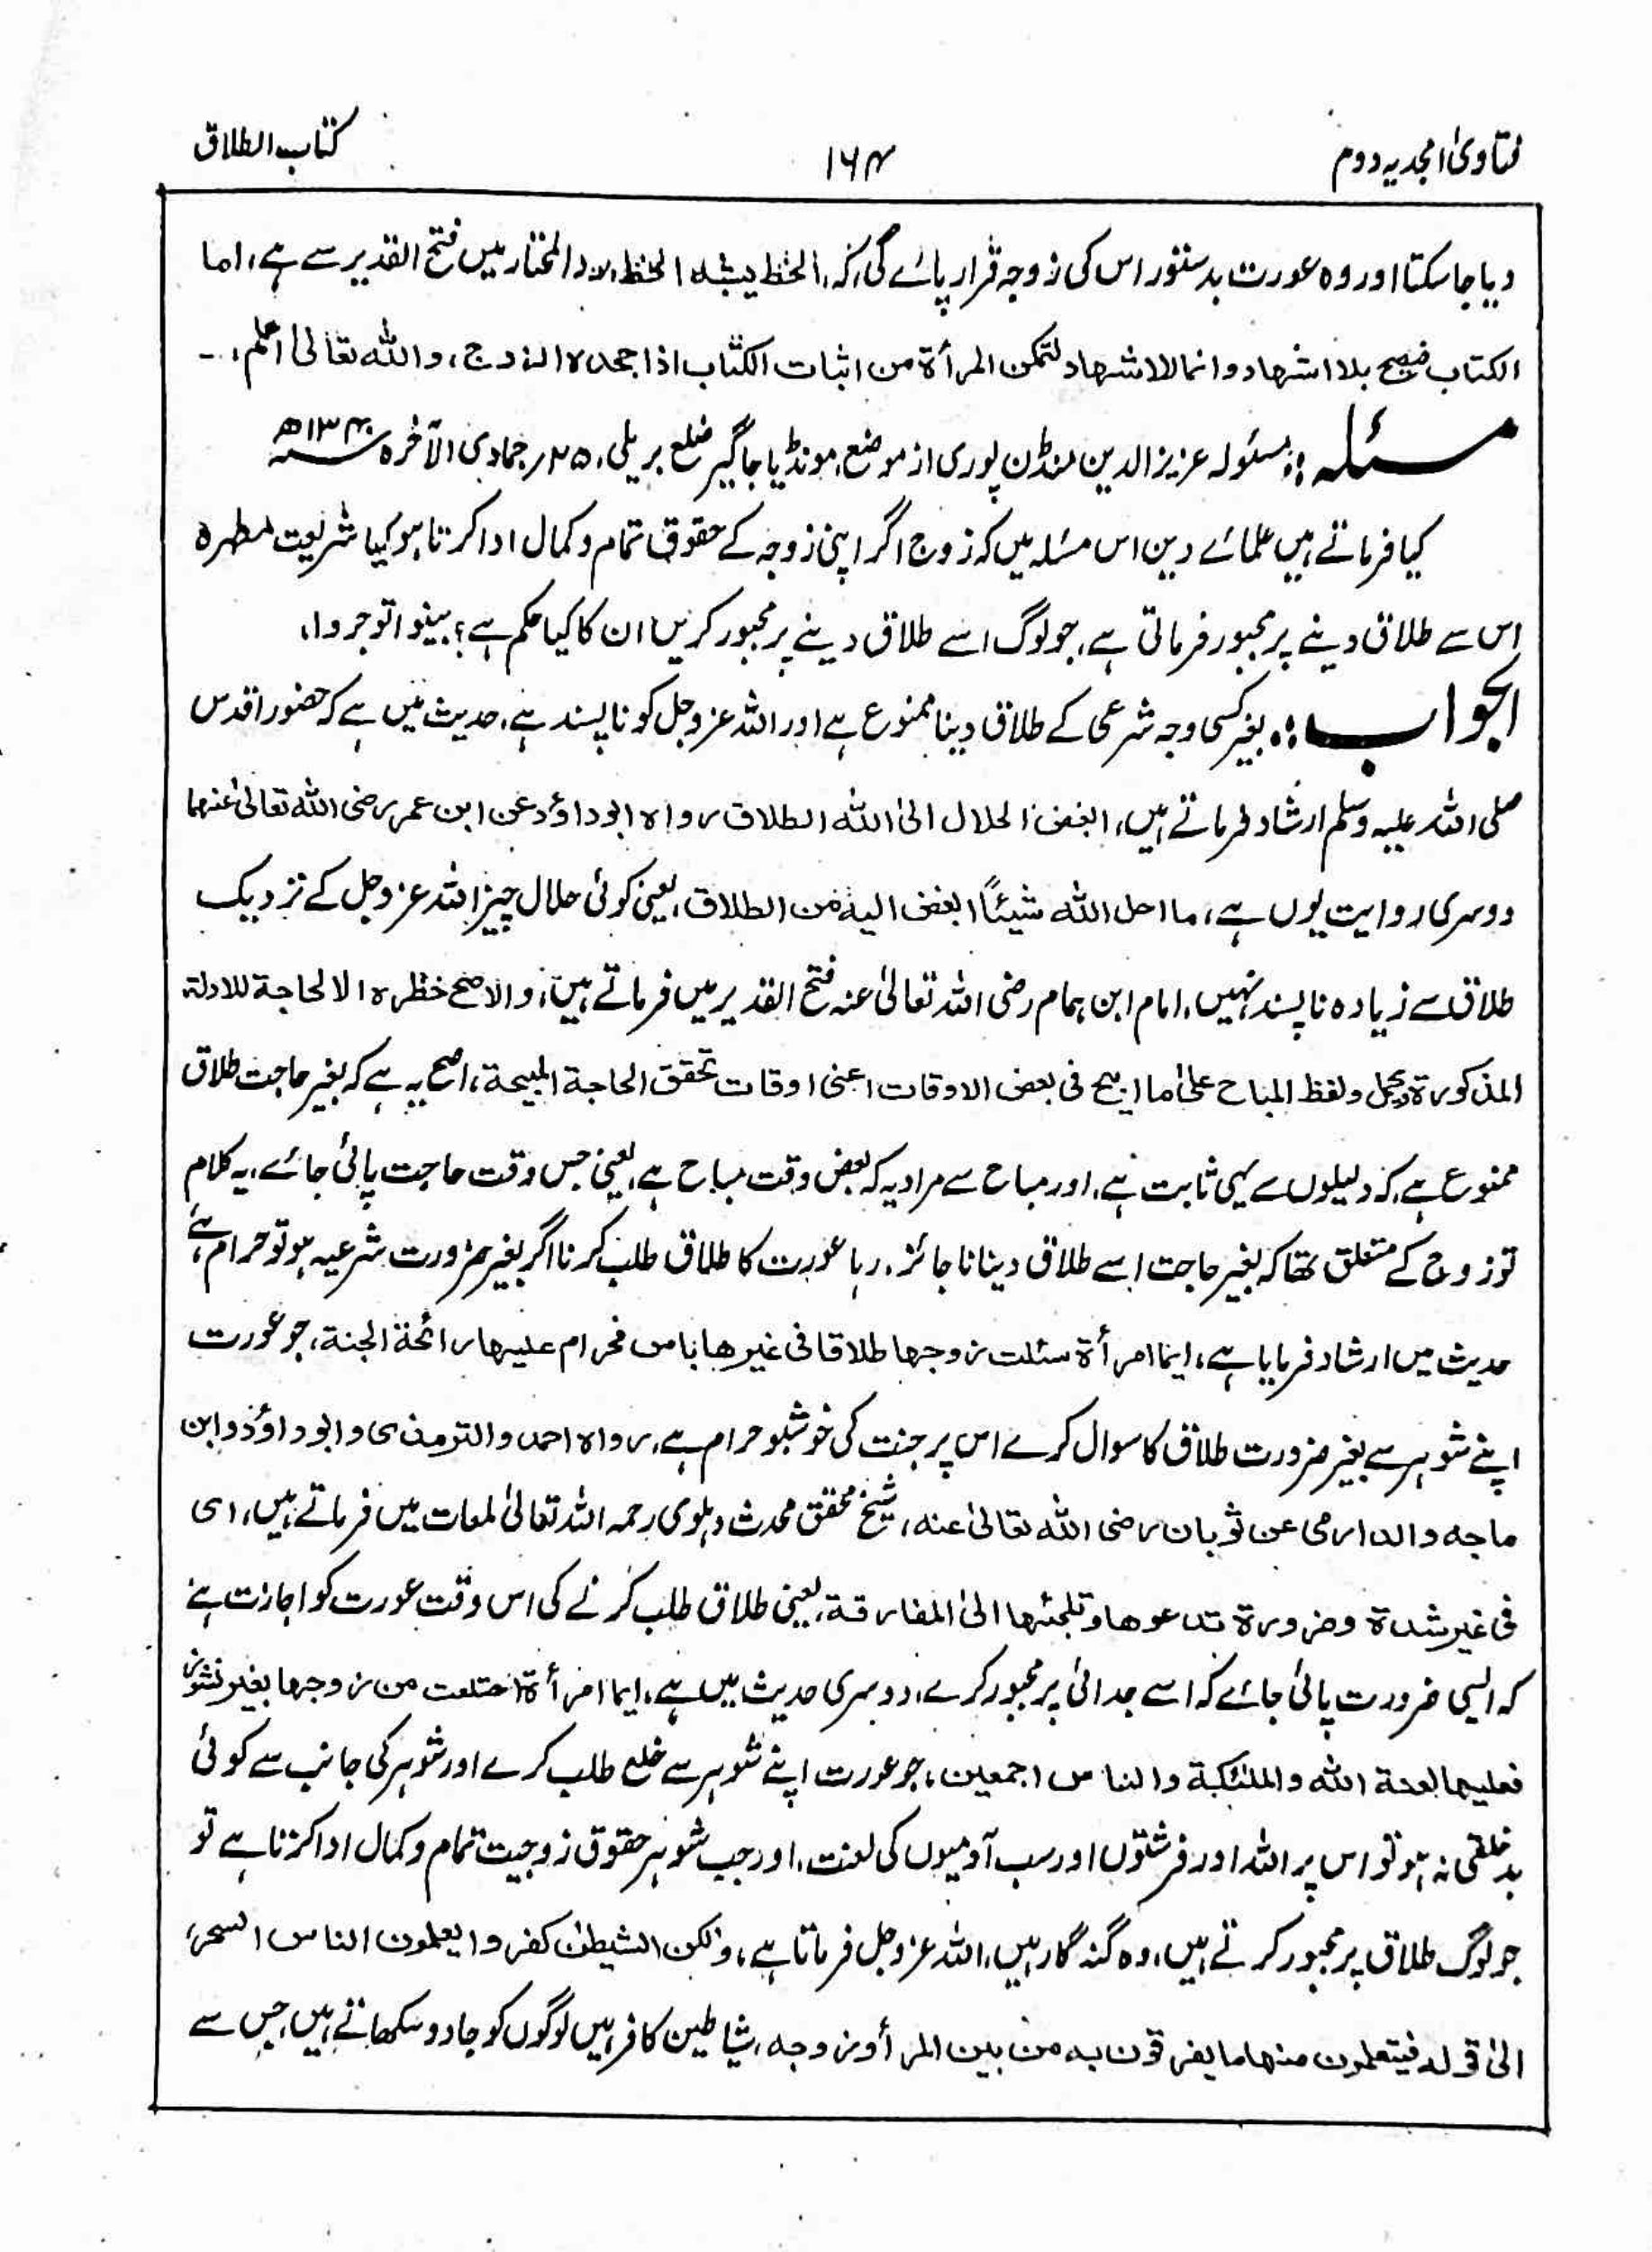 فتاویٰ امجدیہ دوم ۱۶۴ کتاب الطلاق
دیا جا سکتا اور وہ عورت بدستور اس کی زوجہ قرار پائے گی، کہ، الخط یشبه الخط، رد المختار میں فتح القدیر سے ہے، اما
الکتاب فصیح بلا اشھاد وانما الاشھاد لتمکن المرأة من اثبات الکتاب اذا جحده الزوج، واللہ تعالیٰ اعلم، ۔
مسئلہ :، مسئولہ عزیز الدین منڈن پوری از موضع، مونڈیا جاگیر ضلع بریلی، ۲۵ر جمادی الآخرہ ۱۳۴۰ھ
کیا فرماتے ہیں علمائے دین اس مسئلہ میں کہ زوج اگر اپنی زوجہ کے حقوق تمام و کمال ادا کرتا ہو کیا شریعت مطہرہ
اس سے طلاق دینے پر مجبور فرماتی ہے، جو لوگ اسے طلاق دینے پر مجبور کریں ان کا کیا حکم ہے؟ بینوا توجروا،
الجواب :، بغیر کسی وجہ شرعی کے طلاق دینا ممنوع ہے اور اللہ عزوجل کو ناپسند ہے، حدیث میں ہے کہ حضور اقدس
صلی اللہ علیہ وسلم ارشاد فرماتے ہیں، ابغض الحلال الیٰ اللہ الطلاق رواه ابو داؤد عن ابن عمر رضی اللہ تعالیٰ عنہما
دوسری روایت یوں ہے، ما احل اللہ شیئًا ابغض الیه من الطلاق، یعنی کوئی حلال چیز اللہ عزوجل کے نزدیک
طلاق سے زیادہ ناپسند نہیں، امام ابن ہمام رضی اللہ تعالیٰ عنہ فتح القدیر میں فرماتے ہیں، والاصح حظره الا لحاجة للادلة
المذکورة ویحمل ولفظ المباح علیٰ ما ابیح فی بعض الاوقات اعنی اوقات تحقق الحاجة المبیحة، اصح یہ ہے کہ بغیر حاجت طلاق
ممنوع ہے، کہ دلیلوں سے یہی ثابت ہے، اور مباح سے مراد یہ کہ بعض وقت مباح ہے، یعنی جس وقت حاجت پائی جائے، یہ کلام
تو زوج کے متعلق تھا کہ بغیر حاجت اسے طلاق دینا ناجائز، رہا عورت کا طلاق طلب کرنا اگر بغیر ضرورت شرعیہ ہو تو حرام ہے،
حدیث میں ارشاد فرمایا ہے، ایما امرأة سئلت زوجھا طلاقا فی غیرھا باس فحرام علیھا رائحة الجنة، جو عورت
اپنے شوہر سے بغیر ضرورت طلاق کا سوال کرے اس پر جنت کی خوشبو حرام ہے، رواه احمد والترمذی وابو داؤد وابن
ماجه والدارمی عن ثوبان رضی اللہ تعالیٰ عنه، شیخ محقق محدث دہلوی رحمہ اللہ تعالیٰ لمعات میں فرماتے ہیں، ای
فی غیر شدة وضرورة تدعوھا وتلجئھا الیٰ المفارقة، یعنی طلاق طلب کرنے کی اس وقت عورت کو اجازت ہے
کہ ایسی ضرورت پائی جائے کہ اسے جدائی پر مجبور کرے، دوسری حدیث میں ہے، ایما امرأة اختلعت من زوجھا بغیر نشوز
فعلیہا لعنة اللہ والملئکة والناس اجمعین، جو عورت اپنے شوہر سے خلع طلب کرے اور شوہر کی جانب سے کوئی
بدخلقی نہ ہو تو اس پر اللہ اور فرشتوں اور سب آدمیوں کی لعنت، اور جب شوہر حقوق زوجیت تمام و کمال ادا کرتا ہے تو
جو لوگ طلاق پر مجبور کرتے ہیں، وہ گنہ گار ہیں، اللہ عزوجل فرماتا ہے، ولکن الشیطن کفروا یعلمون الناس السحر،
الیٰ قوله فیتعلمون منھما ما یفرقون به من بین المرأ وزوجه، شیاطین کافر ہیں لوگوں کو جادو سکھاتے ہیں، جس سے